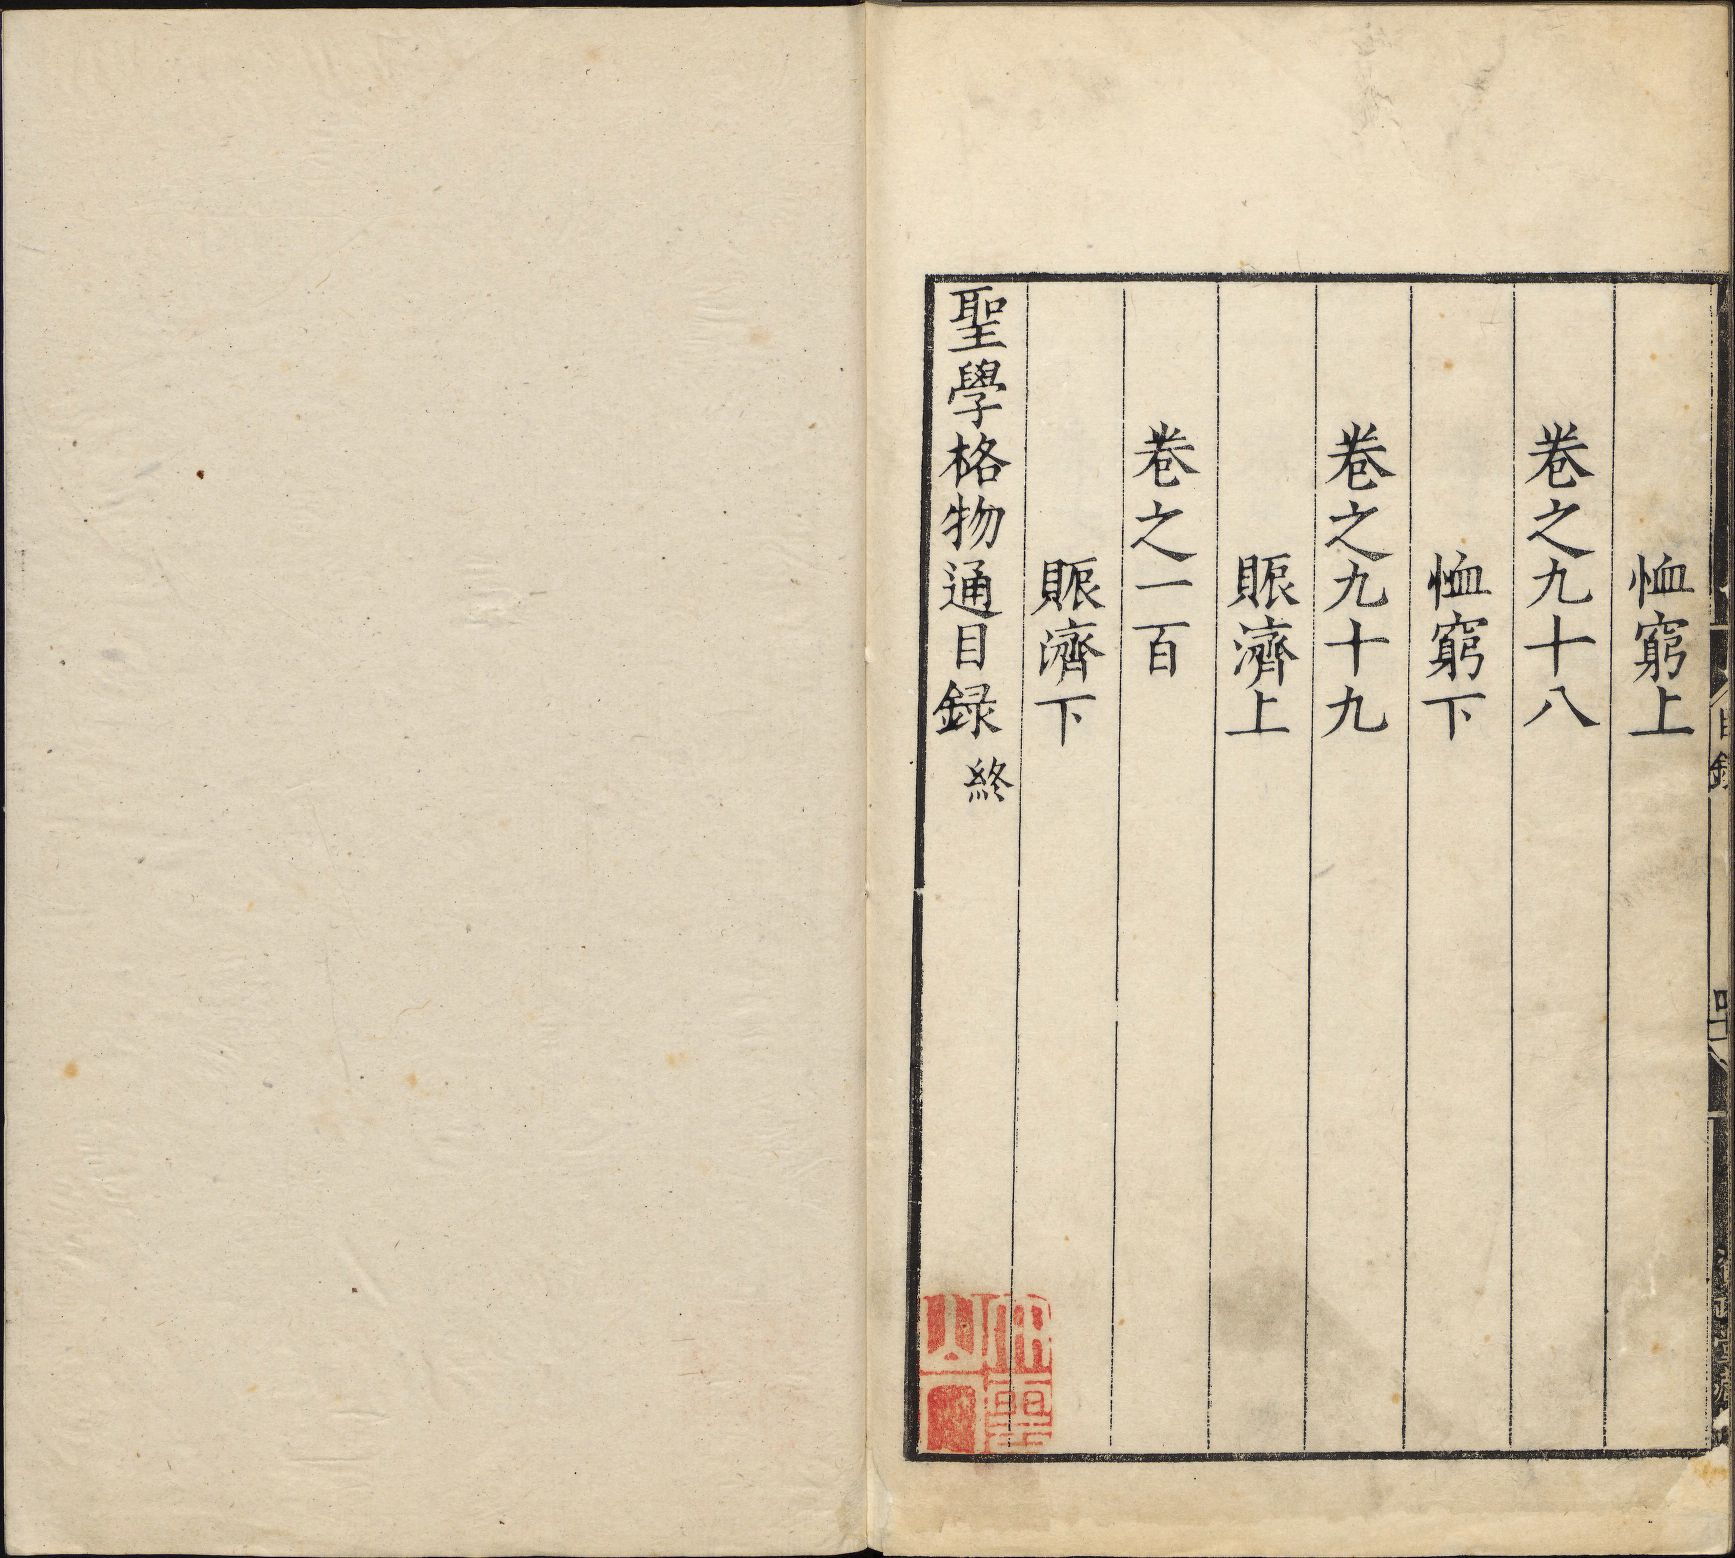 恤窮上
卷之九十八
恤窮下
卷之九十九
賑濟上
卷之一百
賑濟下
聖學格物通目録終
目録